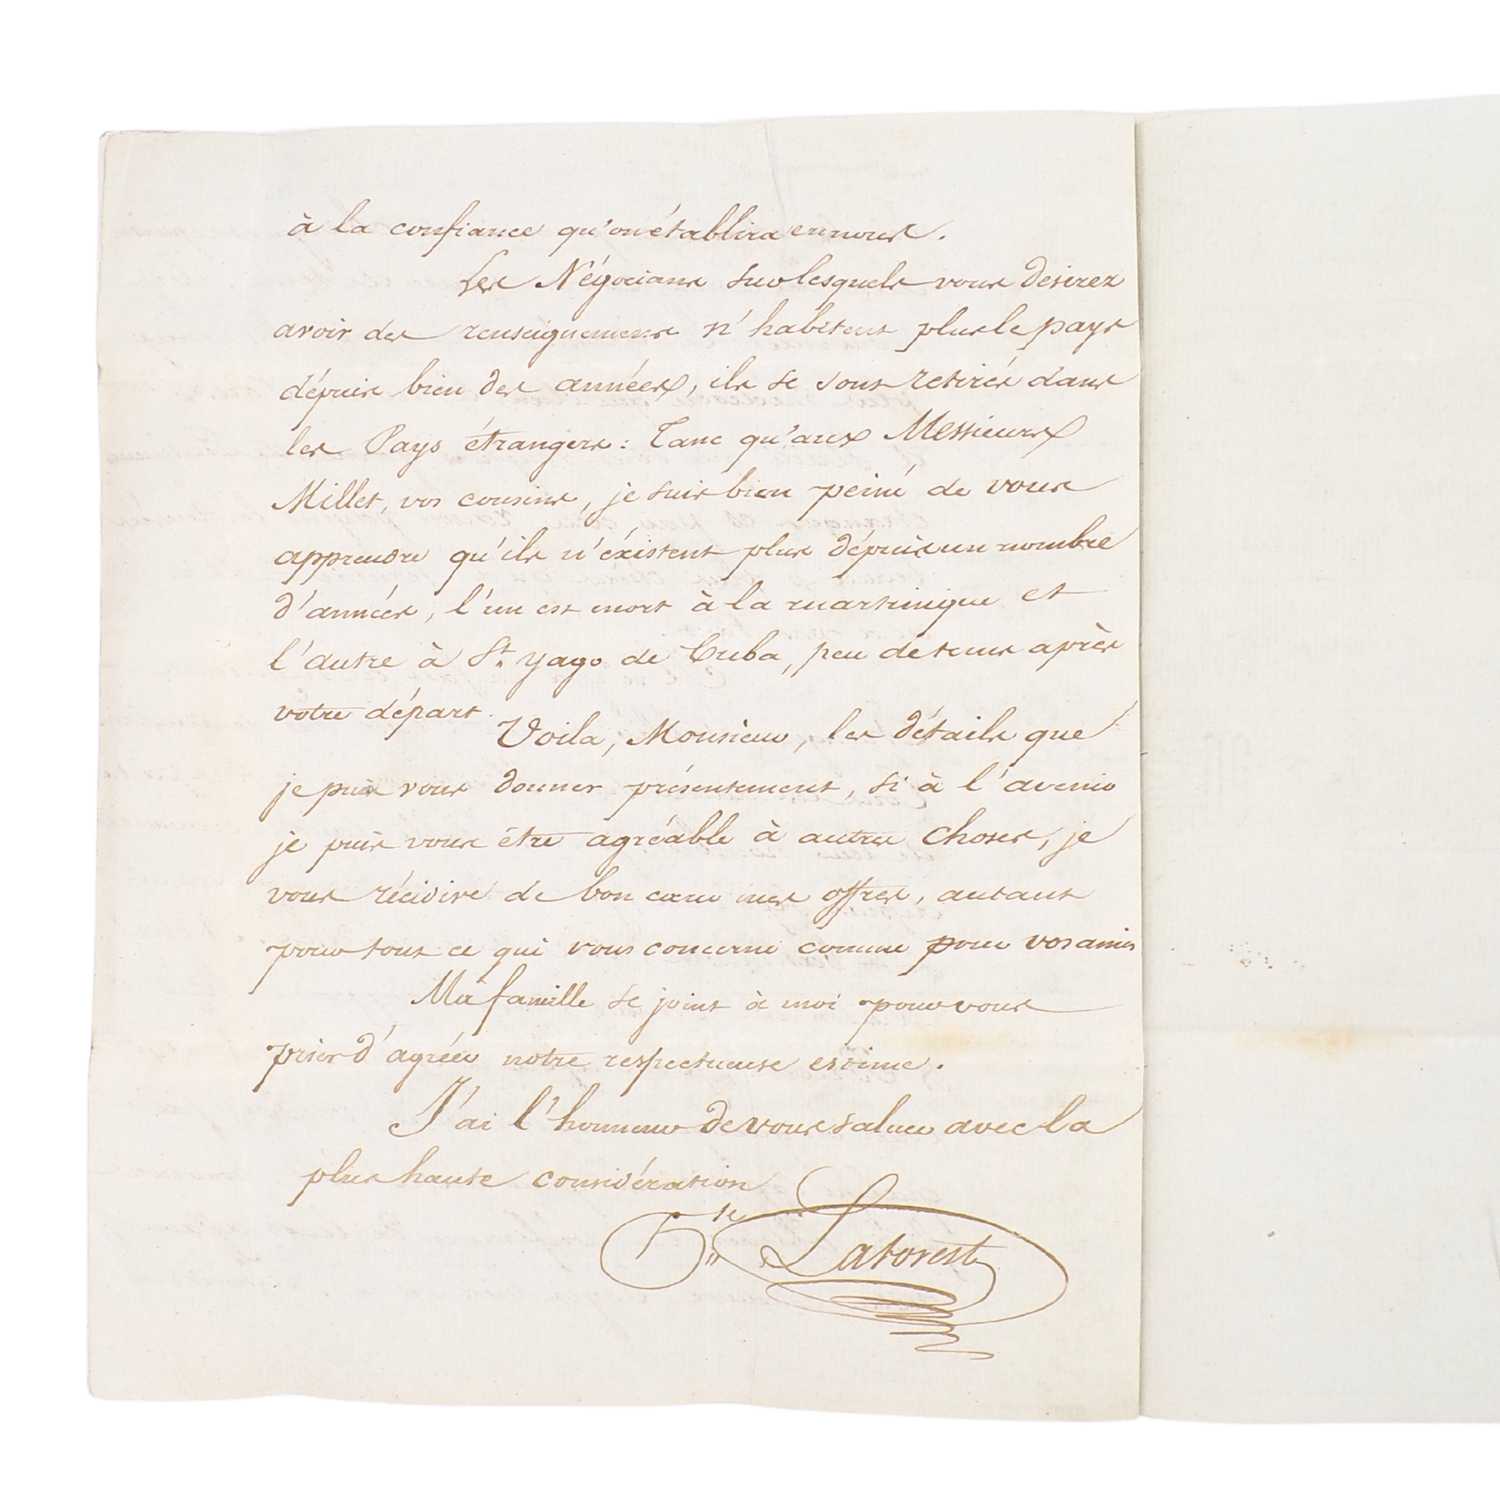 à la confiance qu'on établira en nous.
Les Négocians sur lesquels vous desirez
avoir des renseignemens n'habitent plus le pays
dépuis bien des années, ils se sont retirés dans
les Pays étrangers : Tant qu'aux Messieurs
Millet, vos cousins, je suis bien peiné de vous
apprendre qu'ils n'éxistent plus dépuis un nombre
d'années, l'un est mort à la martinique et
l'autre à St. yago de Cuba, peu de tems après
votre départ.
Voila, Monsieur, les détails que
je puis vous donner présentement, si à l'avenir
je puis vous être agréable à autres choses, je
vous récidive de bon cœur mes offres, autant
pour tout ce qui vous concerne comme pour vos amis
Ma famille se joint à moi pour vous
prier d'agréer notre respectueuse estime.
J'ai l'honneur de vous saluer avec la
plus haute considération
Laforest